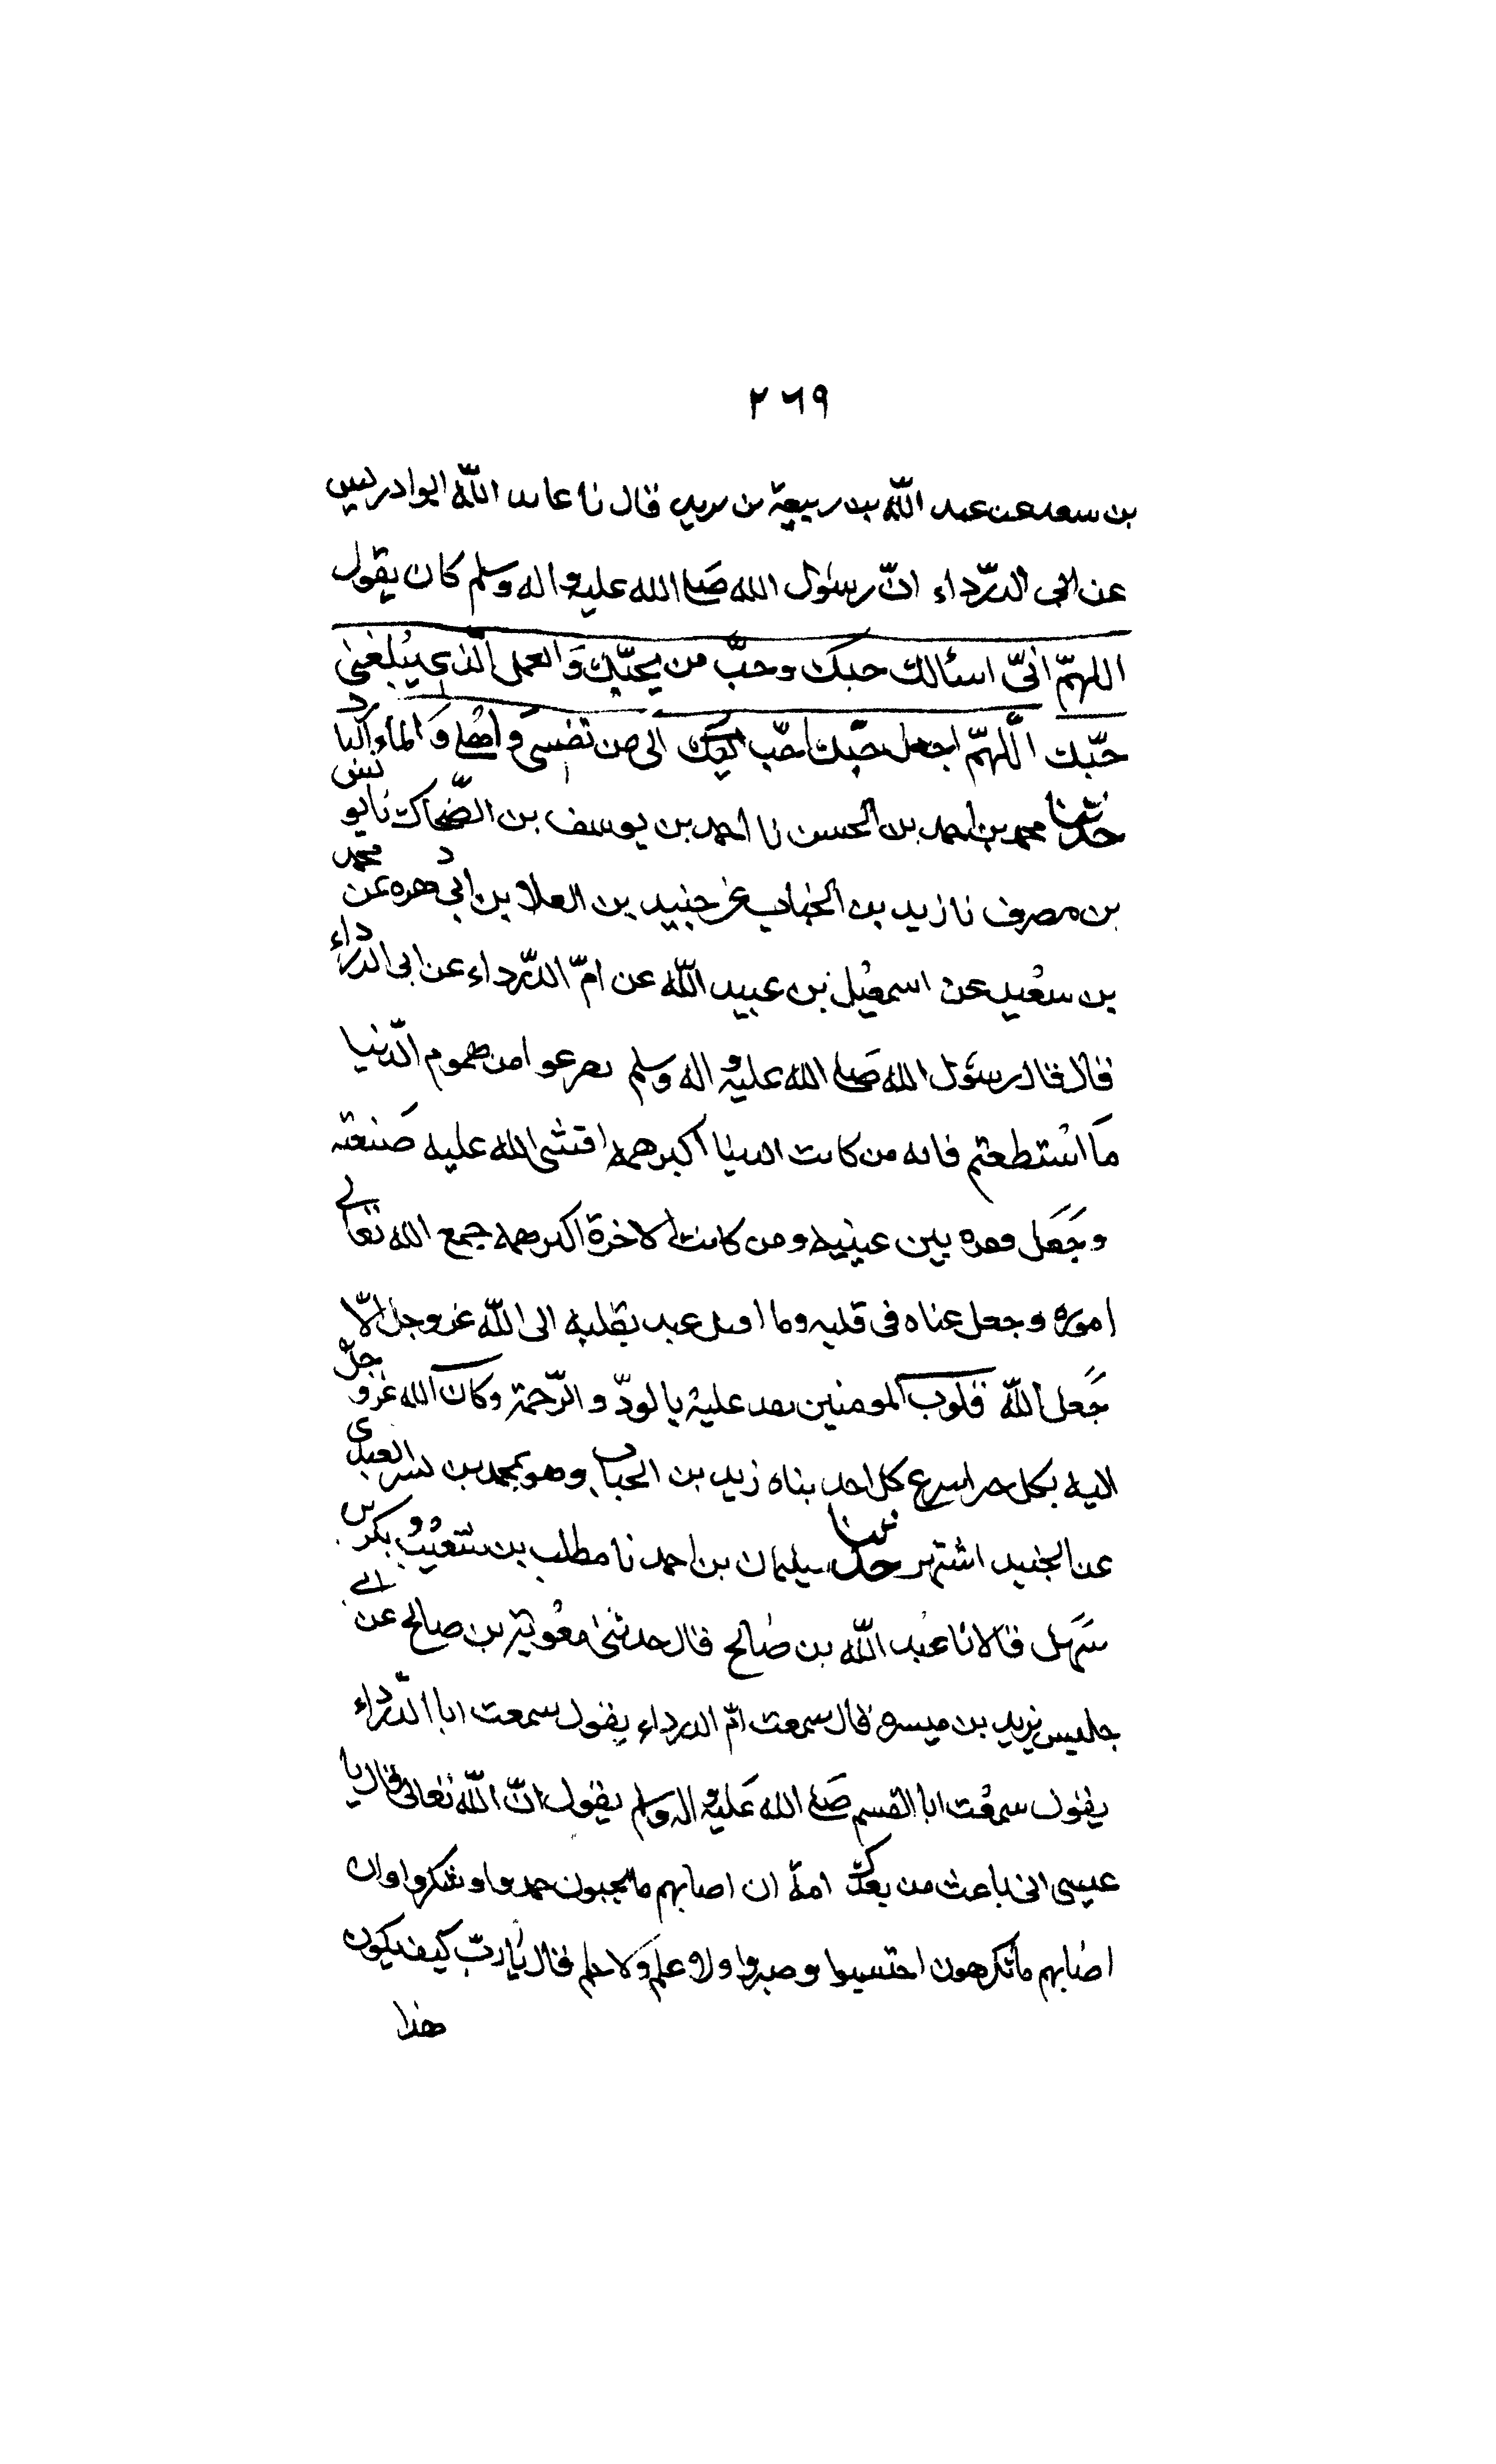 ٢٦٩
بن سعد عن عبد الله بن ربيعة بن يريد قال نا عاىد الله ابوا دريس
عن ابى الدرّداء انّ رسول الله صَلى الله عليه واله وسلم كان يقول
اللهمّ انىّ اسئالك حبك وحبّ من يحبّك وَالعمل الّذى يُبلغنى
حبّك الّلهمّ اجعل حبّك احبّ الىّ من نفسى وَاهلى وَ الماء البارد
حدّثنا محمد بن احمد بن الحسن نا احمد بن يوسف بن الضّحاك نا يونس
بن مصرف نا زيد بن الخباب عن جنيد بن العلا بن ابى دهره عن محمد
بن سعُيد عن اسمعُيل بن عبيد الله عن امّ الدّرداء عن ابى الدرداء
قال قال رسوُل الله صَلى الله عليه واله وسلم ىفرعوا من هموم الدّنيا
مَا استطعتم فانه من كانت الدنيا اكبر همه افتشى الله عليه ضَنعته
وجَعَل فقره بين عينيه ومن كانت الاخرة اكبر همه جمع الله تعالى
اموره وجعل عناه فى قلبه وما اقبل عبد بقلبه الى الله عز وجل الّا
جَعل الله قلوب المومنين ىفد عليه بالودّ والرّحمة وكان الله عزو جلّ
اليه بكل خير اسرع كل احد بناه زيد بن الحباب وهو محمد بن بشر العبدى
عن الجنيد اشتهر حدثنا سيلمان بن احمد نا مطلب بن شعُيُب وبكر بن
سَهل قالا نا عبُد الله بن صالح قال حدثنى معٰوية بن صالح عن ابى
جليس يزيد بن ميسره قال سمعت امّ الدرداء يقول سمعت ابا الدّرداء
يقول سمعُت ابا القسم صَلى الله عَليه واله وسلم يقول انّ الله تعالى قال يا
عيسى انى باعث من بعدك امة ان اصابهم ما يحبون حمدوا وشكروا وان
اصابهم ما يكرهون احتسبوا وصبروا ولا علم وَلا حلم قال يٰا ربّ كيف يكون
هذا